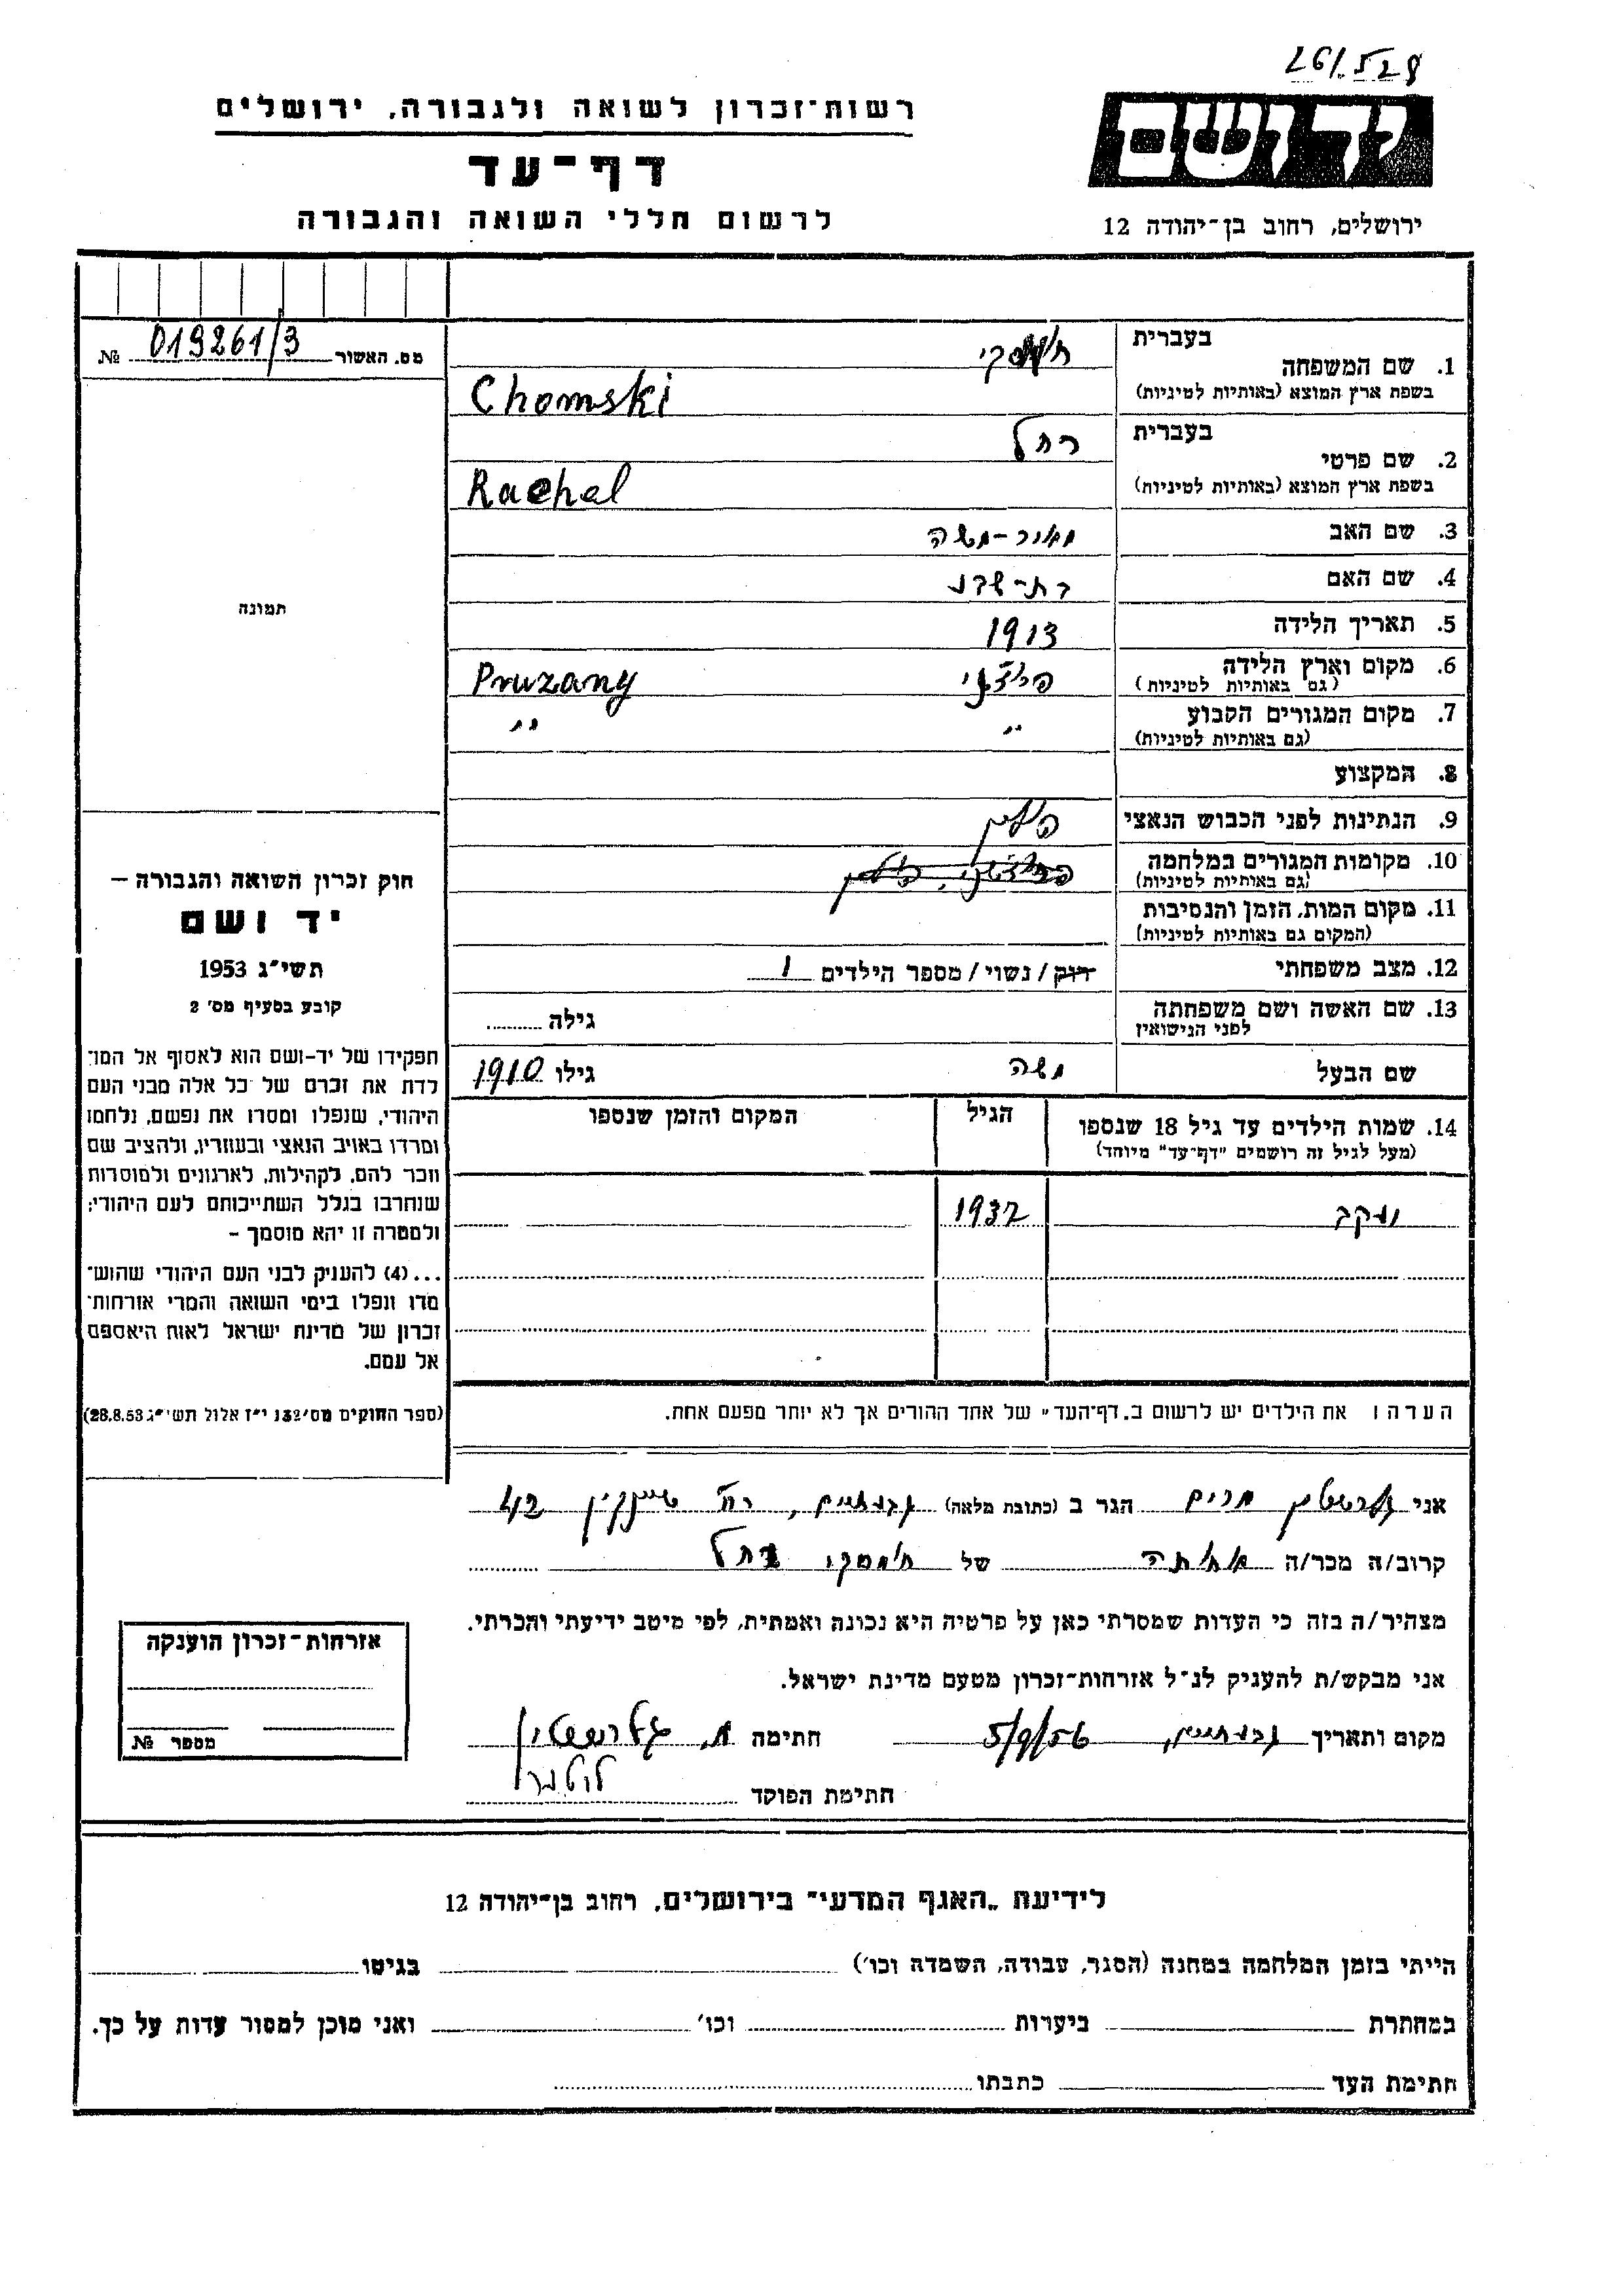 261528
ידושם
רשות־זכרון לשואה ולגבורה, ירושלים
דף־עד
לרשום חללי השואה והגבורה
ירושלים, רחוב בן־יהודה 12
מס. האשור 019261/3 №
בעברית
1. שם המשפחה חומסקי
בשפת ארץ המוצא (באותיות לטיניות) Chomski
בעברית
2. שם פרטי רחל
בשפת ארץ המוצא (באותיות לטיניות) Rachel
3. שם האב מאיר-משה
4. שם האם בת-שבע
5. תאריך הלידה 1913
6. מקום וארץ הלידה פרוז'ני Pruzany
(גם באותיות לטיניות)
7. מקום המגורים הקבוע " "
(גם באותיות לטיניות)
8. המקצוע
9. הנתינות לפני הכבוש הנאצי פולין
10. מקומות המגורים במלחמה
(גם באותיות לטיניות)
11. מקום המות, הזמן והנסיבות
(המקום גם באותיות לטיניות)
12. מצב משפחתי רוק / נשוי / מספר הילדים 1
13. שם האשה ושם משפחתה גילה
לפני הנישואין
שם הבעל משה גילו 1910
14. שמות הילדים עד גיל 18 שנספו הגיל המקום והזמן שנספו
(מעל לגיל זה רושמים "דף־עד" מיוחד)
יעקב 1932
הערה: את הילדים יש לרשום ב„דף־העד" של אחד ההורים אך לא יותר מפעם אחת.
תמונה
חוק זכרון השואה והגבורה –
יד ושם
תשי"ג 1953
קובע בסעיף מס' 2
תפקידו של יד-ושם הוא לאסוף אל המו־
לדת את זכרם של כל אלה מבני העם
היהודי, שנפלו ומסרו את נפשם, נלחמו
ומרדו באויב הנאצי ובעוזריו, ולהציב שם
וזכר להם, לקהילות, לארגונים ולמוסדות
שנחרבו בגלל השתייכותם לעם היהודי;
ולמטרה זו יהא מוסמך –
...(4) להעניק לבני העם היהודי שהוש־
מדו ונפלו בימי השואה והמרי אזרחות־
זכרון של מדינת ישראל לאות היאספם
אל עמם.
(ספר החוקים מס' 132, י"ז אלול תשי"ג 28.8.53)
אני גולדשטיין מרים הגר ב (כתובת מלאה) גבעתיים, רח' שינקין 42
קרוב/ה מכר/ה אחותה של חומסקי רחל
מצהיר/ה בזה כי העדות שמסרתי כאן על פרטיה היא נכונה ואמתית, לפי מיטב ידיעתי והכרתי.
אני מבקש/ת להעניק לנ"ל אזרחות־זכרון מטעם מדינת ישראל.
מקום ותאריך גבעתיים, 5/9/56 חתימה מ. גולדשטיין
חתימת הפוקד
אזרחות־זכרון הוענקה
מספר №
לידיעת „האגף המדעי" בירושלים, רחוב בן־יהודה 12
הייתי בזמן המלחמה במחנה (הסגר, עבודה, השמדה וכו') בגיטו
במחתרת ביערות וכו' ואני מוכן למסור עדות על כך.
חתימת העד כתבתו